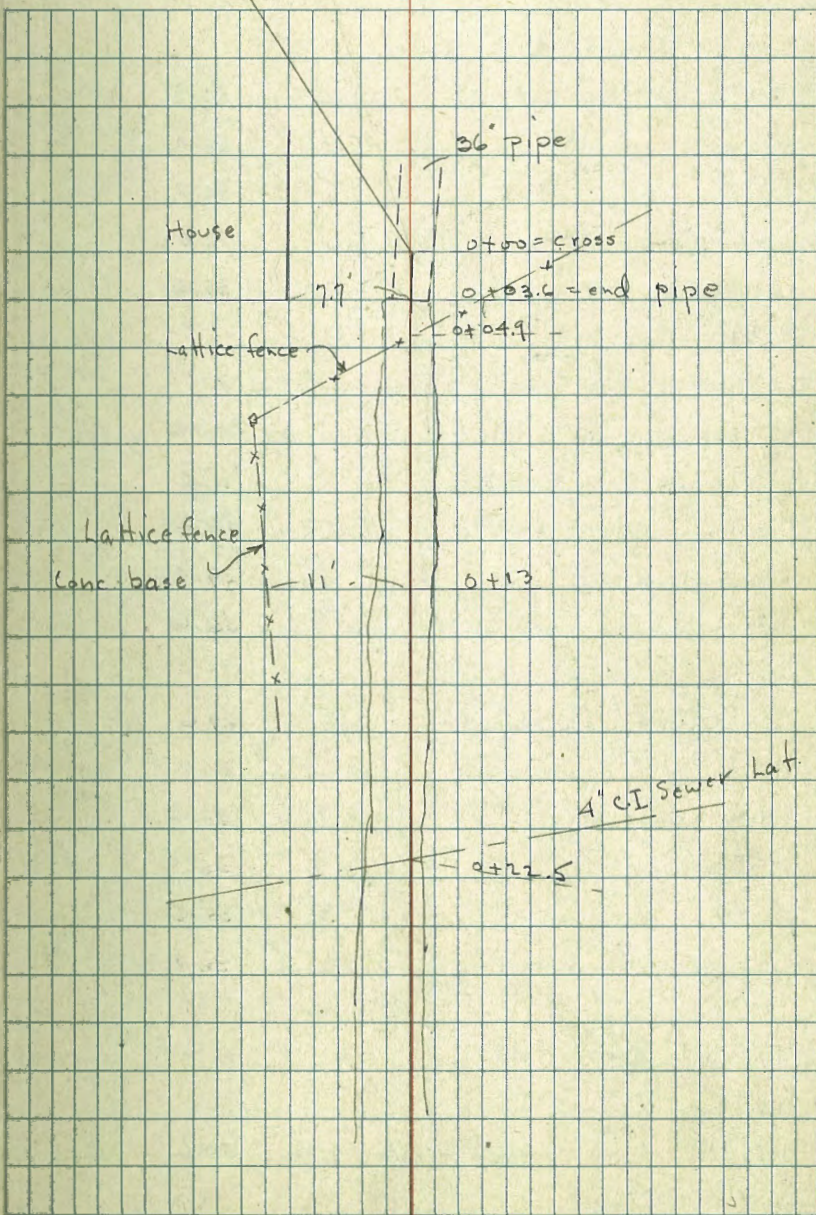 36" pipe
House
0+00 = cross
7.7'
0+03.6 = end pipe
0+04.9
Lattice fence
Lattice fence
Conc. base
11'
0+13
4" C.I. Sewer Lat.
0+22.5